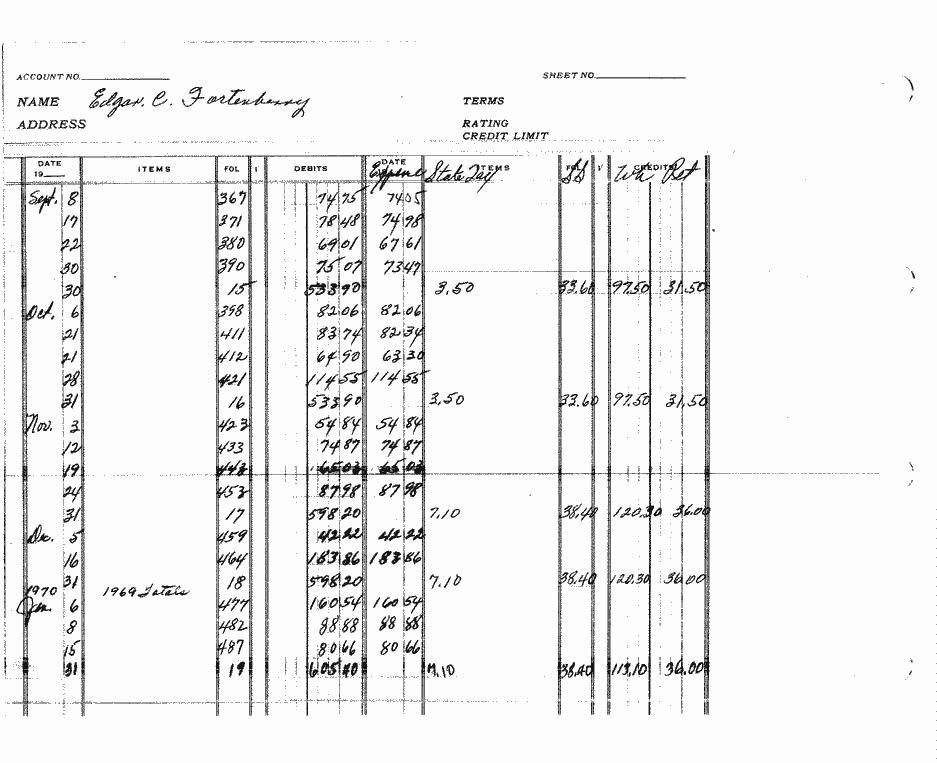 ACCOUNT NO. SHEET NO.
NAME Edgar. C. Fortenberry TERMS
ADDRESS RATING
CREDIT LIMIT
DATE 19 ITEMS FOL DEBITS DATE Expense State Tax ITEMS SS CREDITS WH Ret
Sept. 8 367 74 75 74 05
17 371 78 48 74 98
22 380 69 01 67 61
30 390 75 07 73 47
30 15 533 90 3.50 33.60 97.50 31.50
Oct. 6 398 82 06 82 06
21 411 83 74 82 34
21 412 64 90 63 30
28 421 114 55 114 55
31 16 533 90 3.50 33.60 97.50 31.50
Nov. 3 423 54 84 54 84
12 433 74 87 74 87
19 443 65 03 65 03
24 453 87 98 87 98
31 17 598 20 7.10 38.40 120.30 36.00
Dec. 5 459 42 22 42 22
16 464 183 86 183 86
31 18 598 20 7.10 38.40 120.30 36.00
1970 1969 Totals
Jan. 6 477 160 54 160 54
8 482 88 88 88 88
15 487 80 66 80 66
31 19 605 40 7.10 38.40 113.10 36.00